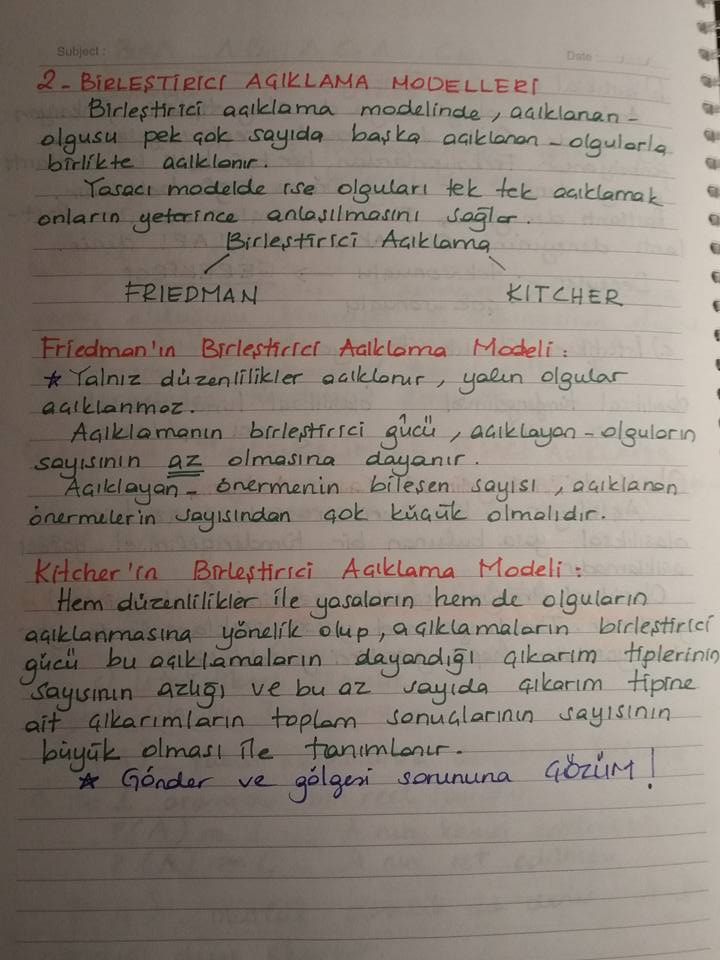 Subject :
Date :
2- BİRLEŞTİRİCİ AÇIKLAMA MODELLERİ
Birleştirici açıklama modelinde, açıklanan-
olgusu pek çok sayıda başka açıklanan-olgularla
birlikte açıklanır.
Yasacı modelde ise olguları tek tek açıklamak
onların yeterince anlaşılmasını sağlar.
Birleştirici Açıklama
FRIEDMAN KITCHER
Friedman'ın Birleştirici Açıklama Modeli :
* Yalnız düzenlilikler açıklanır, yalın olgular
açıklanmaz.
Açıklamanın birleştirici gücü, açıklayan-olguların
sayısının az olmasına dayanır.
Açıklayan- önermenin bileşen sayısı, açıklanan
önermelerin sayısından çok küçük olmalıdır.
Kitcher'in Birleştirici Açıklama Modeli :
Hem düzenlilikler ile yasaların hem de olguların
açıklanmasına yönelik olup, açıklamaların birleştirici
gücü bu açıklamaların dayandığı çıkarım tiplerinin
sayısının azlığı ve bu az sayıda çıkarım tipine
ait çıkarımların toplam sonuçlarının sayısının
büyük olması ile tanımlanır.
* Gönder ve gölgesi sorununa ÇÖZÜM!